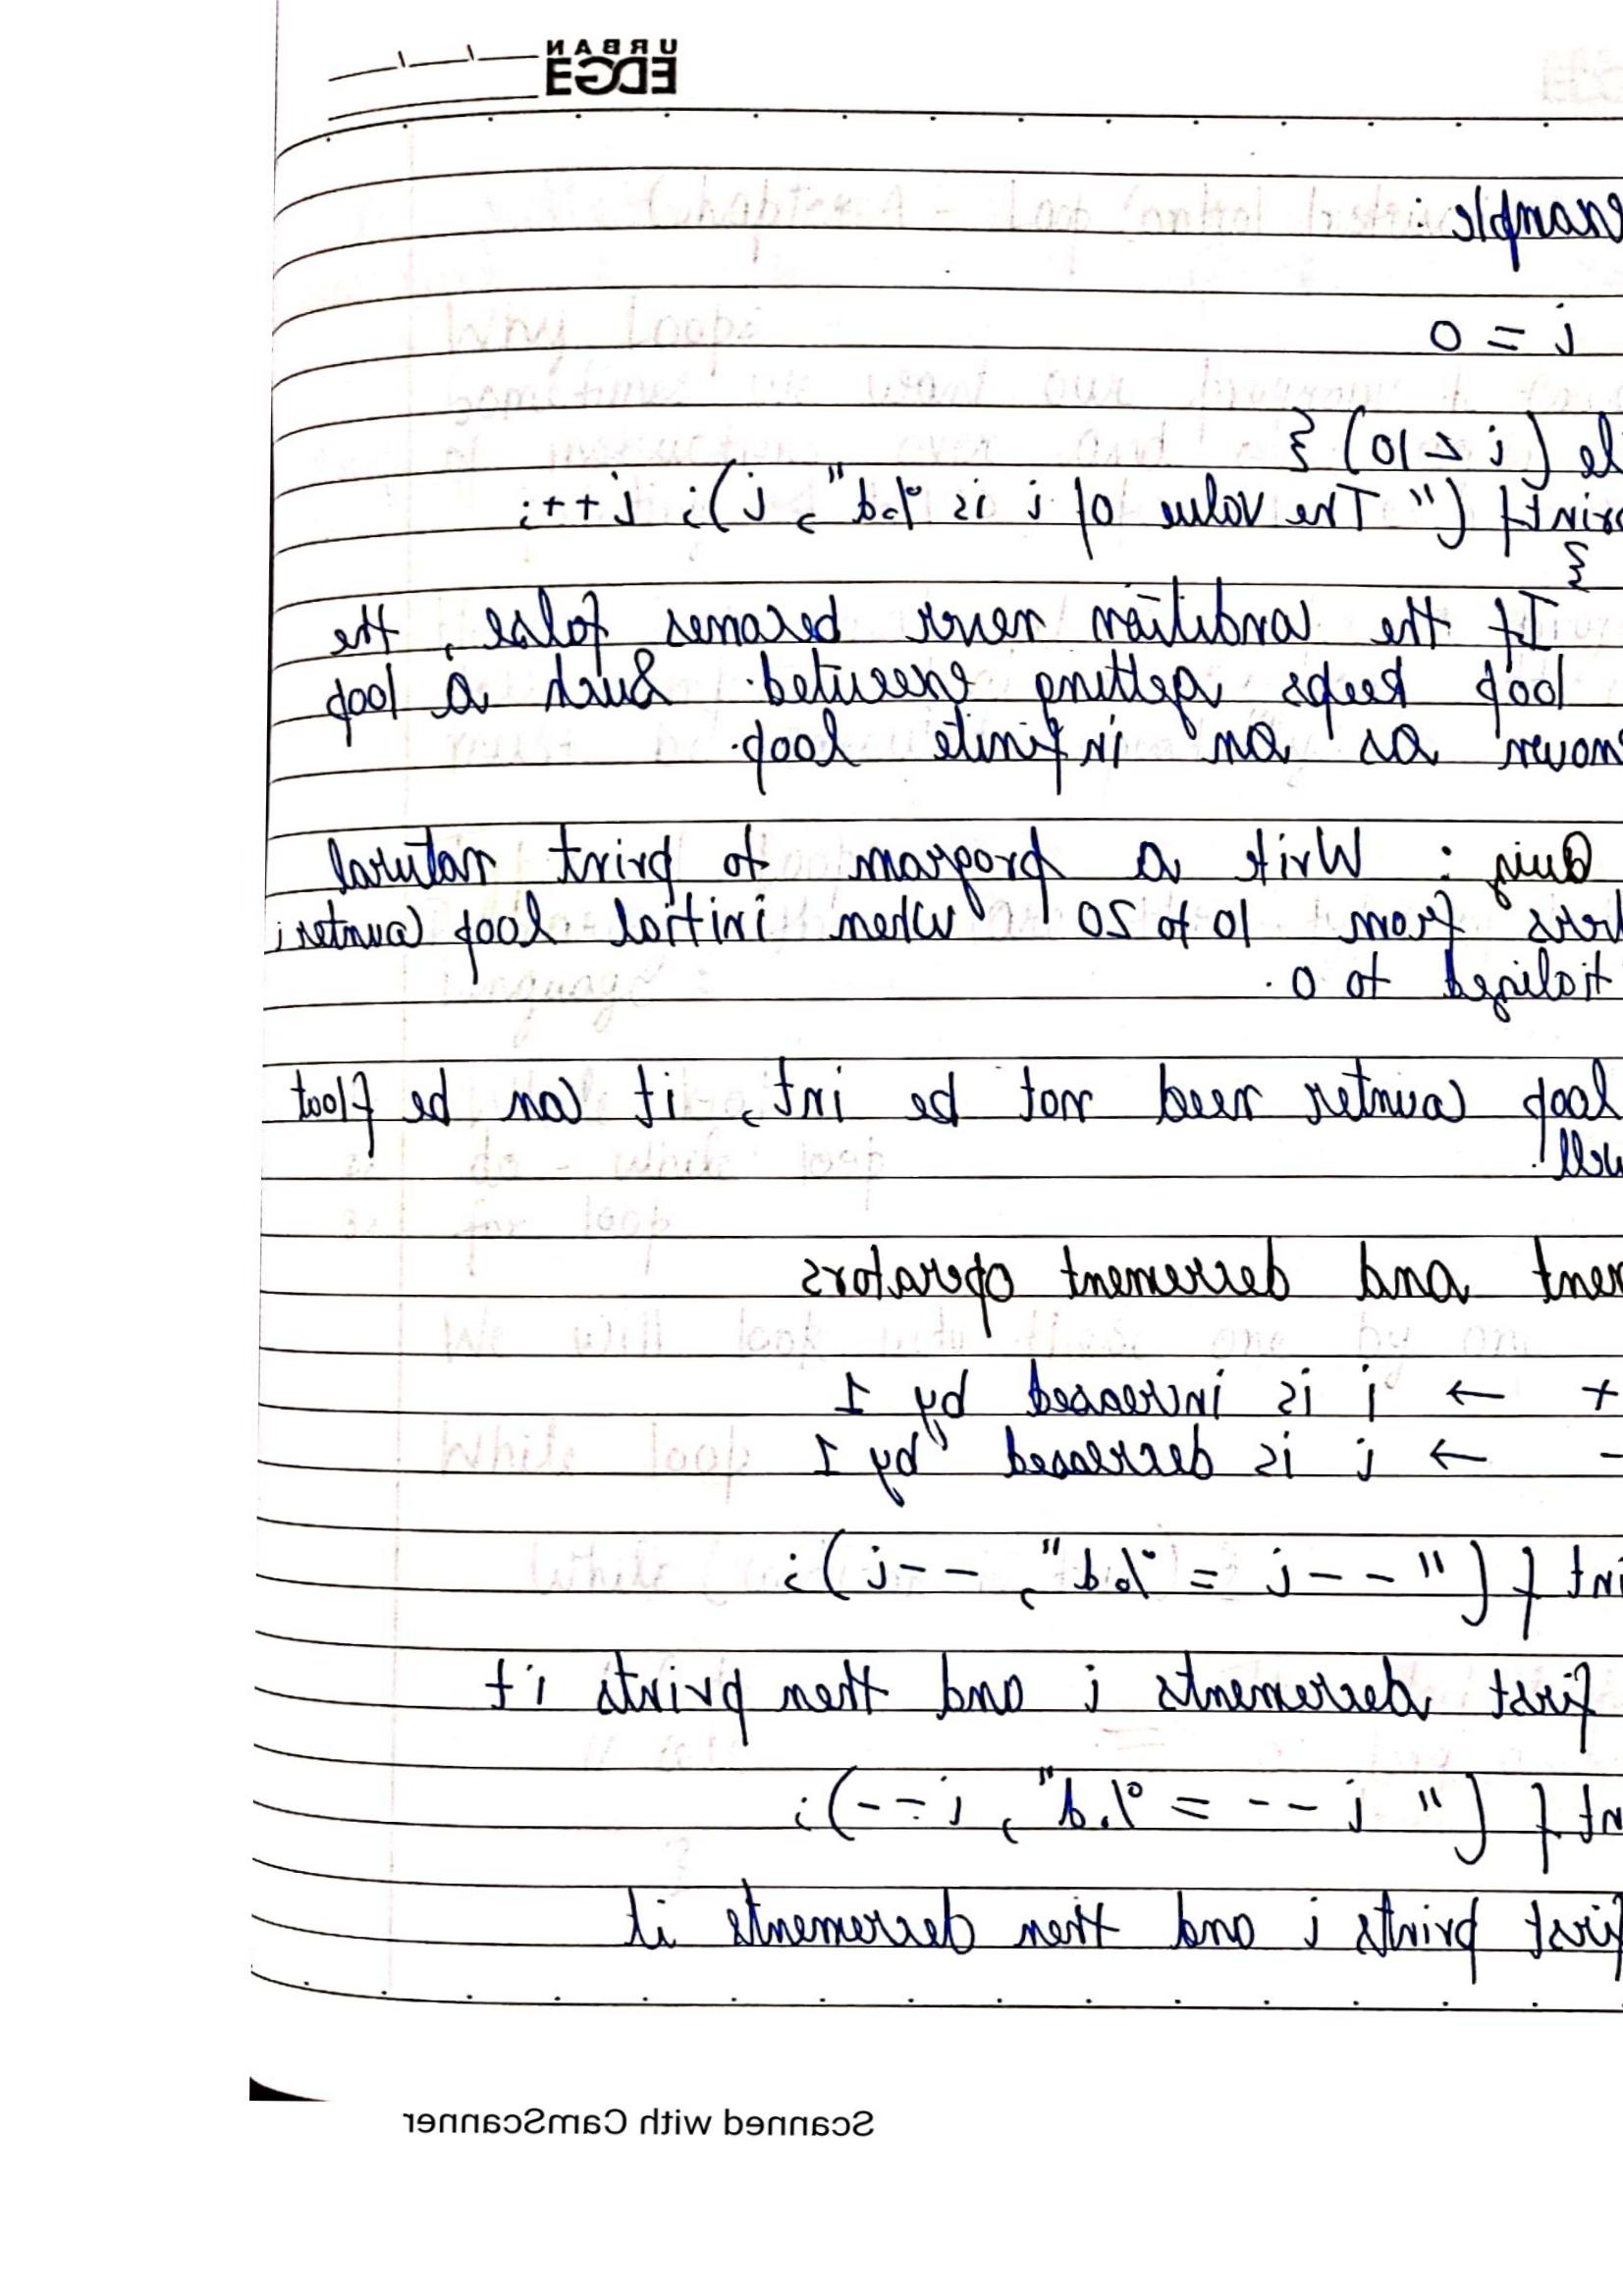 URBAN
EDGE
example :
i = 0
le ( i < 10 ) {
rintf (" The value of i is %d", i); i++;
}
If the condition never becomes false, the
loop keeps getting executed. Such a loop
nown as an infinite loop.
Quiz : Write a program to print natural
bers from 10 to 20 when initial loop counter i
tialized to 0.
loop counter need not be int, it can be float
well.
ment and decrement operators
+ → i is increased by 1
- → i is decreased by 1
int f (" --i = %d", --i );
first decrements i and then prints it
nt f (" i -- = %d", i--);
first prints i and then decrements it
Scanned with CamScanner